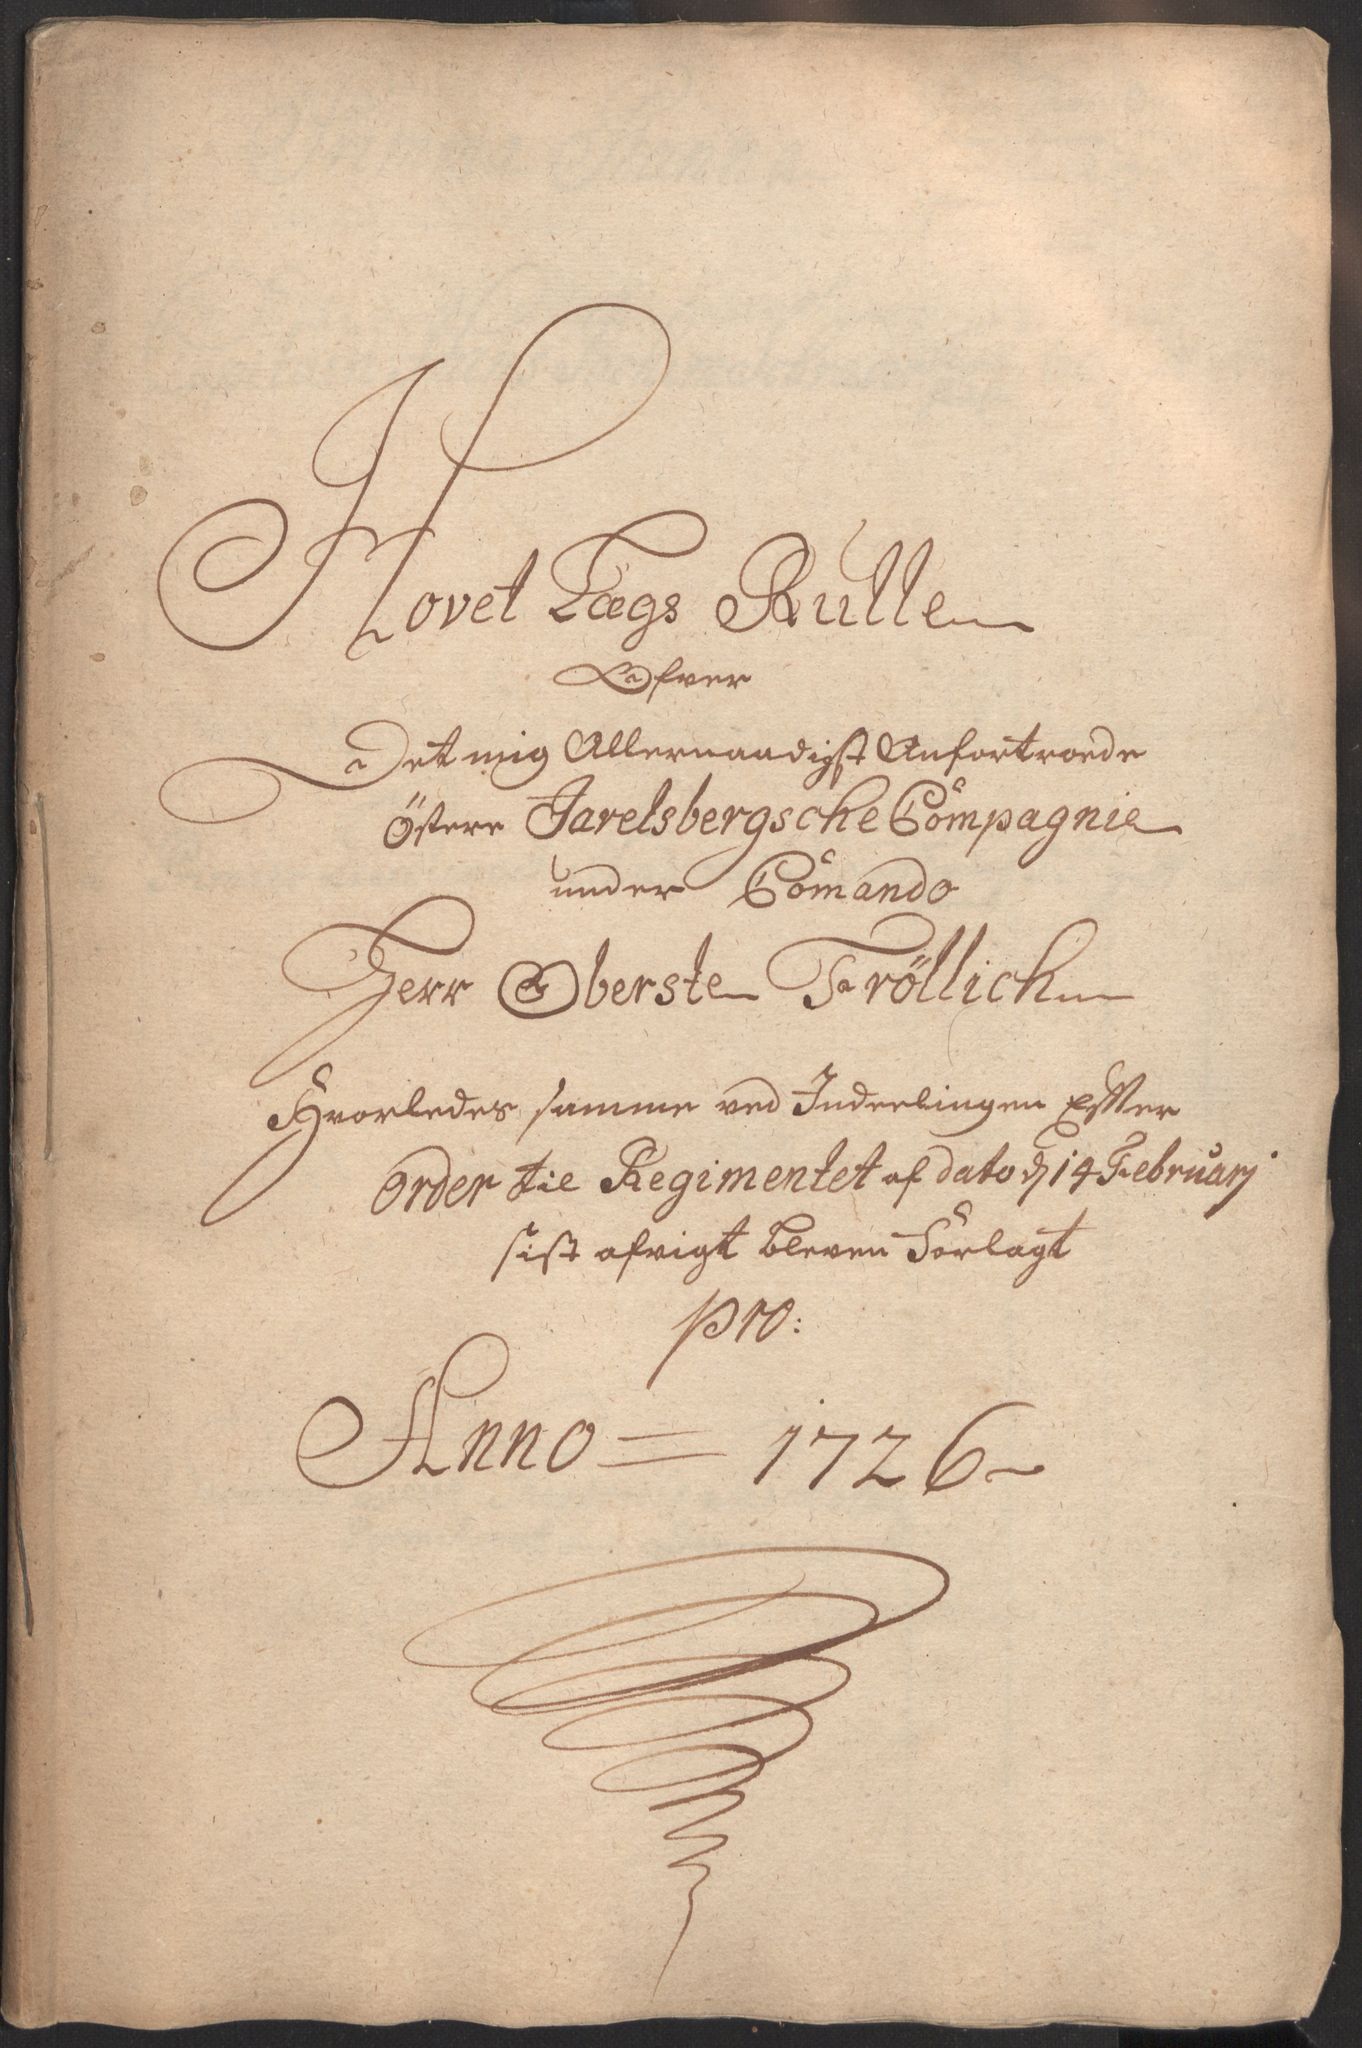 Hovet Lægs Rulle
Ofver
Det mig Allernaadigst Anfortroede
Östere Jarelsbergsche Compagnie
under Comando
Herr Oberste Fröllich
Hvorledes samme ved Inderlingen Effter
Order til Regimentet af dato d 14 Februarj
sist afvigt bleven Forlagt
pro:
Anno = 1726